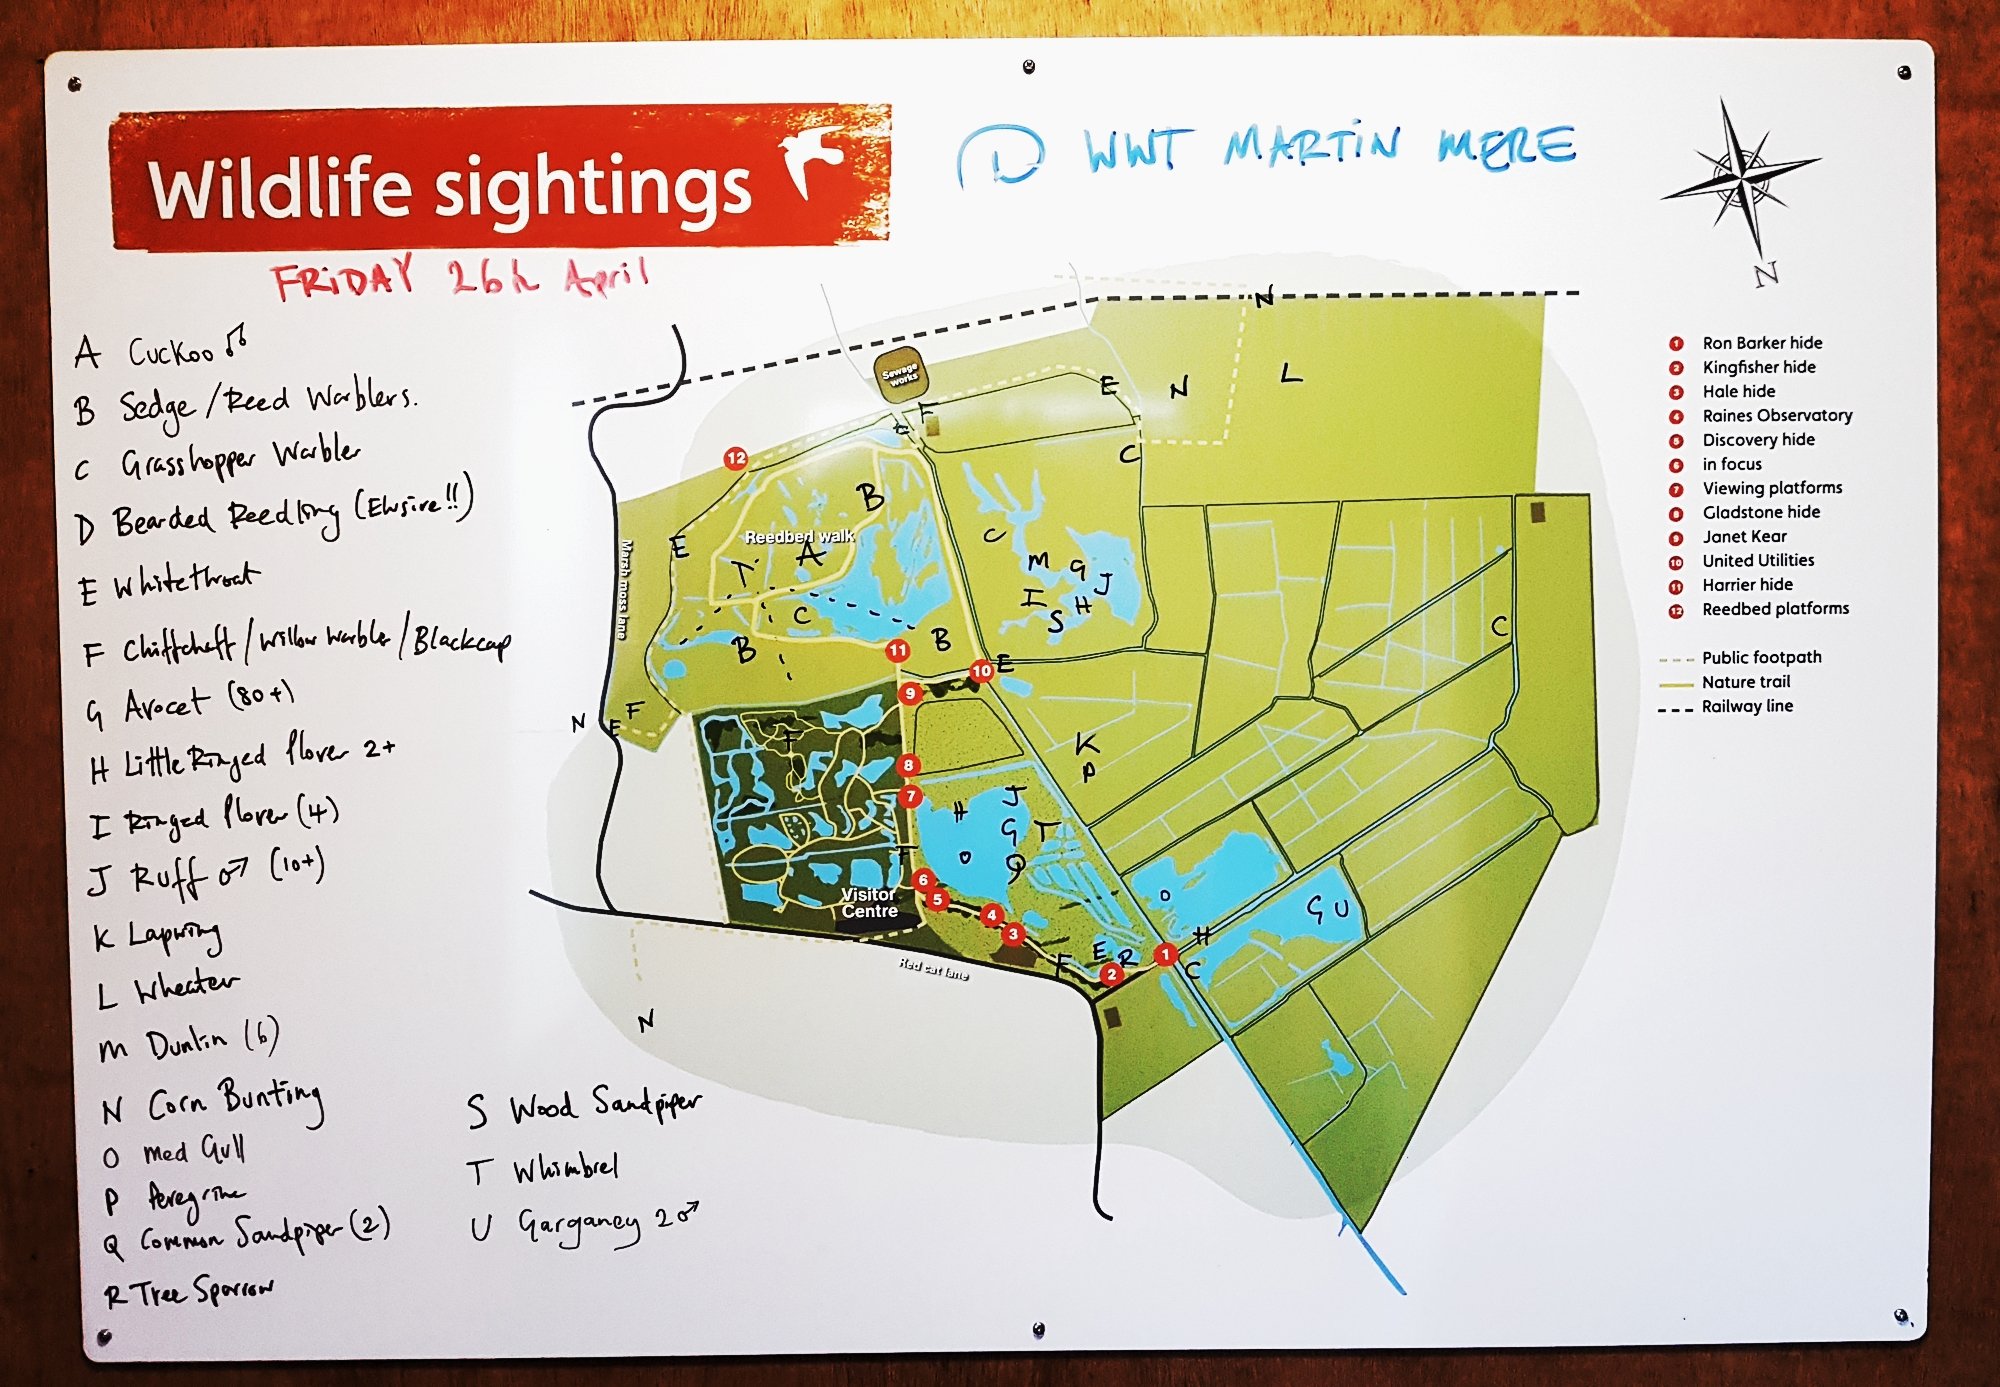 Wildlife sightings
WWT MARTIN MERE
FRIDAY 26th April
A Cuckoo ♂
B Sedge/Reed Warblers.
C Grasshopper Warbler
D Bearded Reedling (Elusive!!)
E Whitethroat
F Chiffchaff/Willow Warbler/Blackcap
G Avocet (80+)
H Little Ringed Plover 2+
I Ringed Plover (4)
J Ruff ♂ (10+)
K Lapwing
L Wheatear
M Dunlin (6)
N Corn Bunting
O Med Gull
P Peregrine
Q Common Sandpiper (2)
R Tree Sparrow
S Wood Sandpiper
T Whimbrel
U Garganey 2♂
N
N
L
Sewage
works
E
N
F
E
C
12
B
Reedbed walk
E
A
T
C
M
G
J
I
H
S
C
C
Marsh moss lane
B
B
11
10
E
9
N
E
F
F
K
P
8
7
H
J
G
T
O
Q
F
6
5
4
3
Visitor
Centre
Red cat lane
O
G U
H
E
R
F
2
1
C
N
N
1 Ron Barker hide
2 Kingfisher hide
3 Hale hide
4 Raines Observatory
5 Discovery hide
6 in focus
7 Viewing platforms
8 Gladstone hide
9 Janet Kear
10 United Utilities
11 Harrier hide
12 Reedbed platforms
Public footpath
Nature trail
Railway line